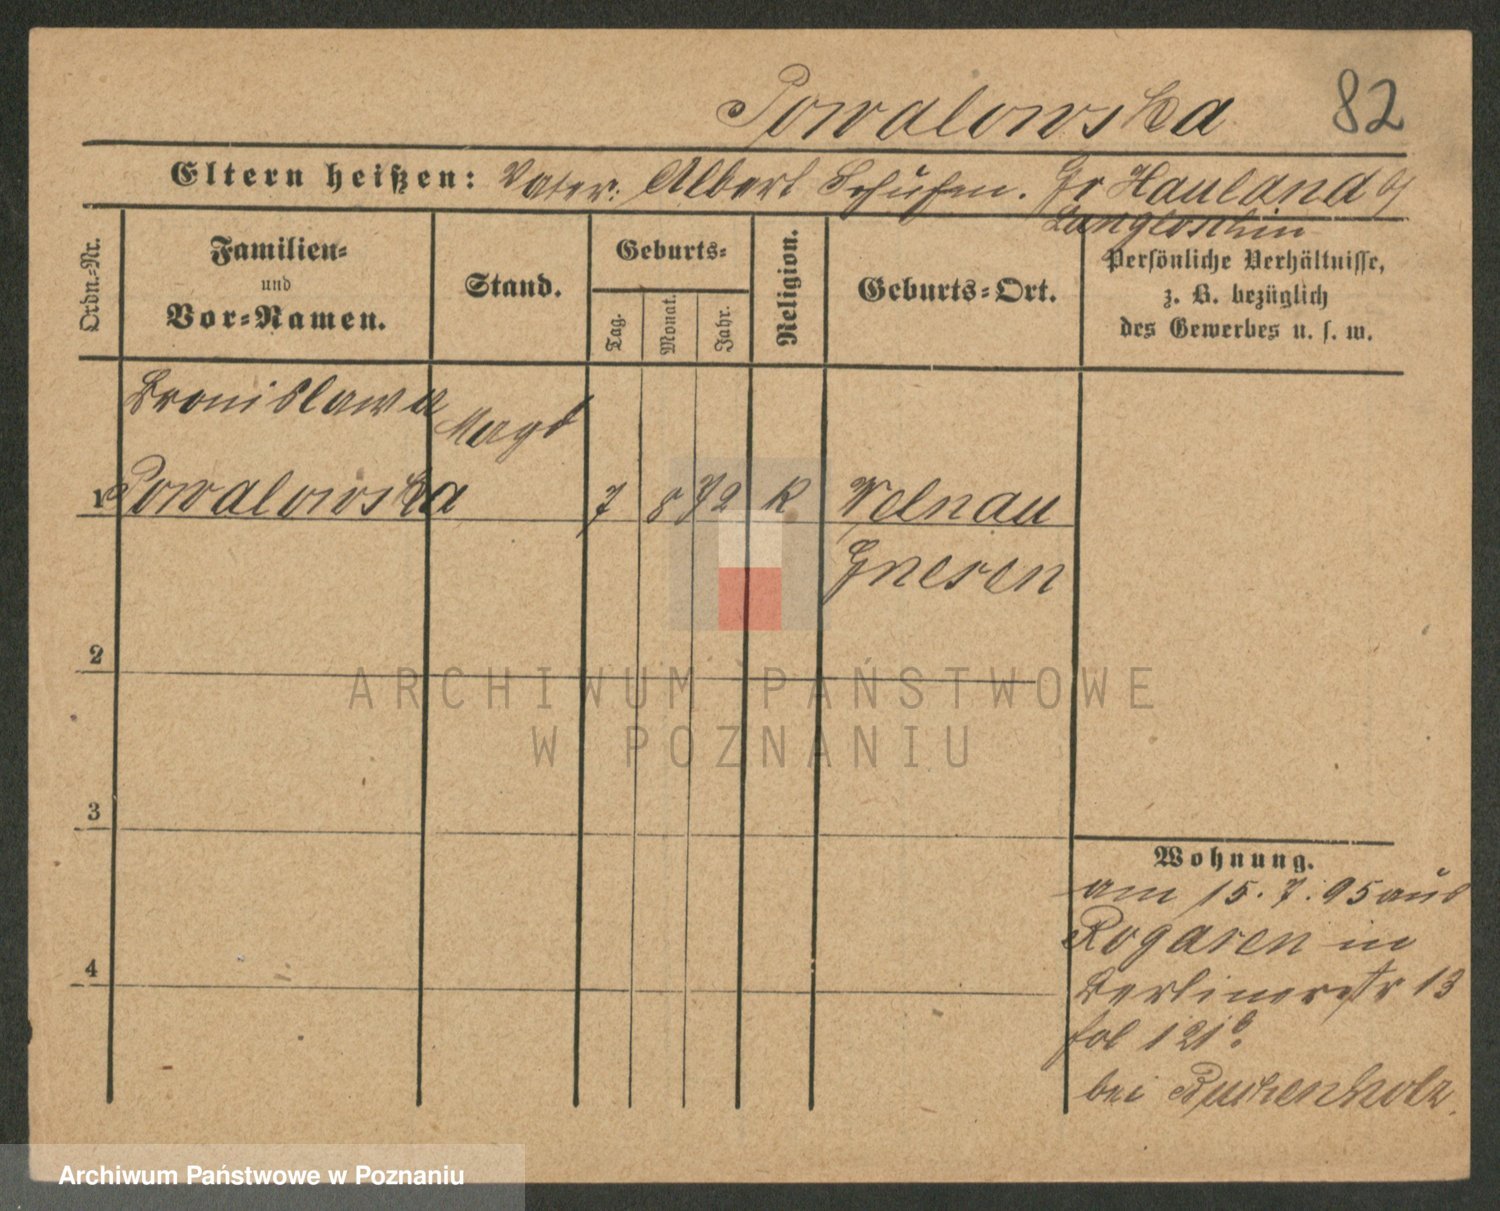 Powalowska 82
Eltern heißen: Vater: Albert Gr Hauland b/
Langgoschin
Ordn.-Nr. Familien- und Vor-Namen. Stand. Geburts- Tag. Monat. Jahr. Religion. Geburts-Ort. Persönliche Verhältnisse, z. B. bezüglich des Gewerbes u. s. w.
Bronislawa Magd
1 Powalowska 7 8 72 K Welnau
Gnesen
2
3
4
Wohnung.
am 15. 7. 95 aus
Rogasen in
Berlinerstr 13
fol 121
bei Buchenholz.
ARCHIWUM PAŃSTWOWE
W POZNANIU
Archiwum Państwowe w Poznaniu